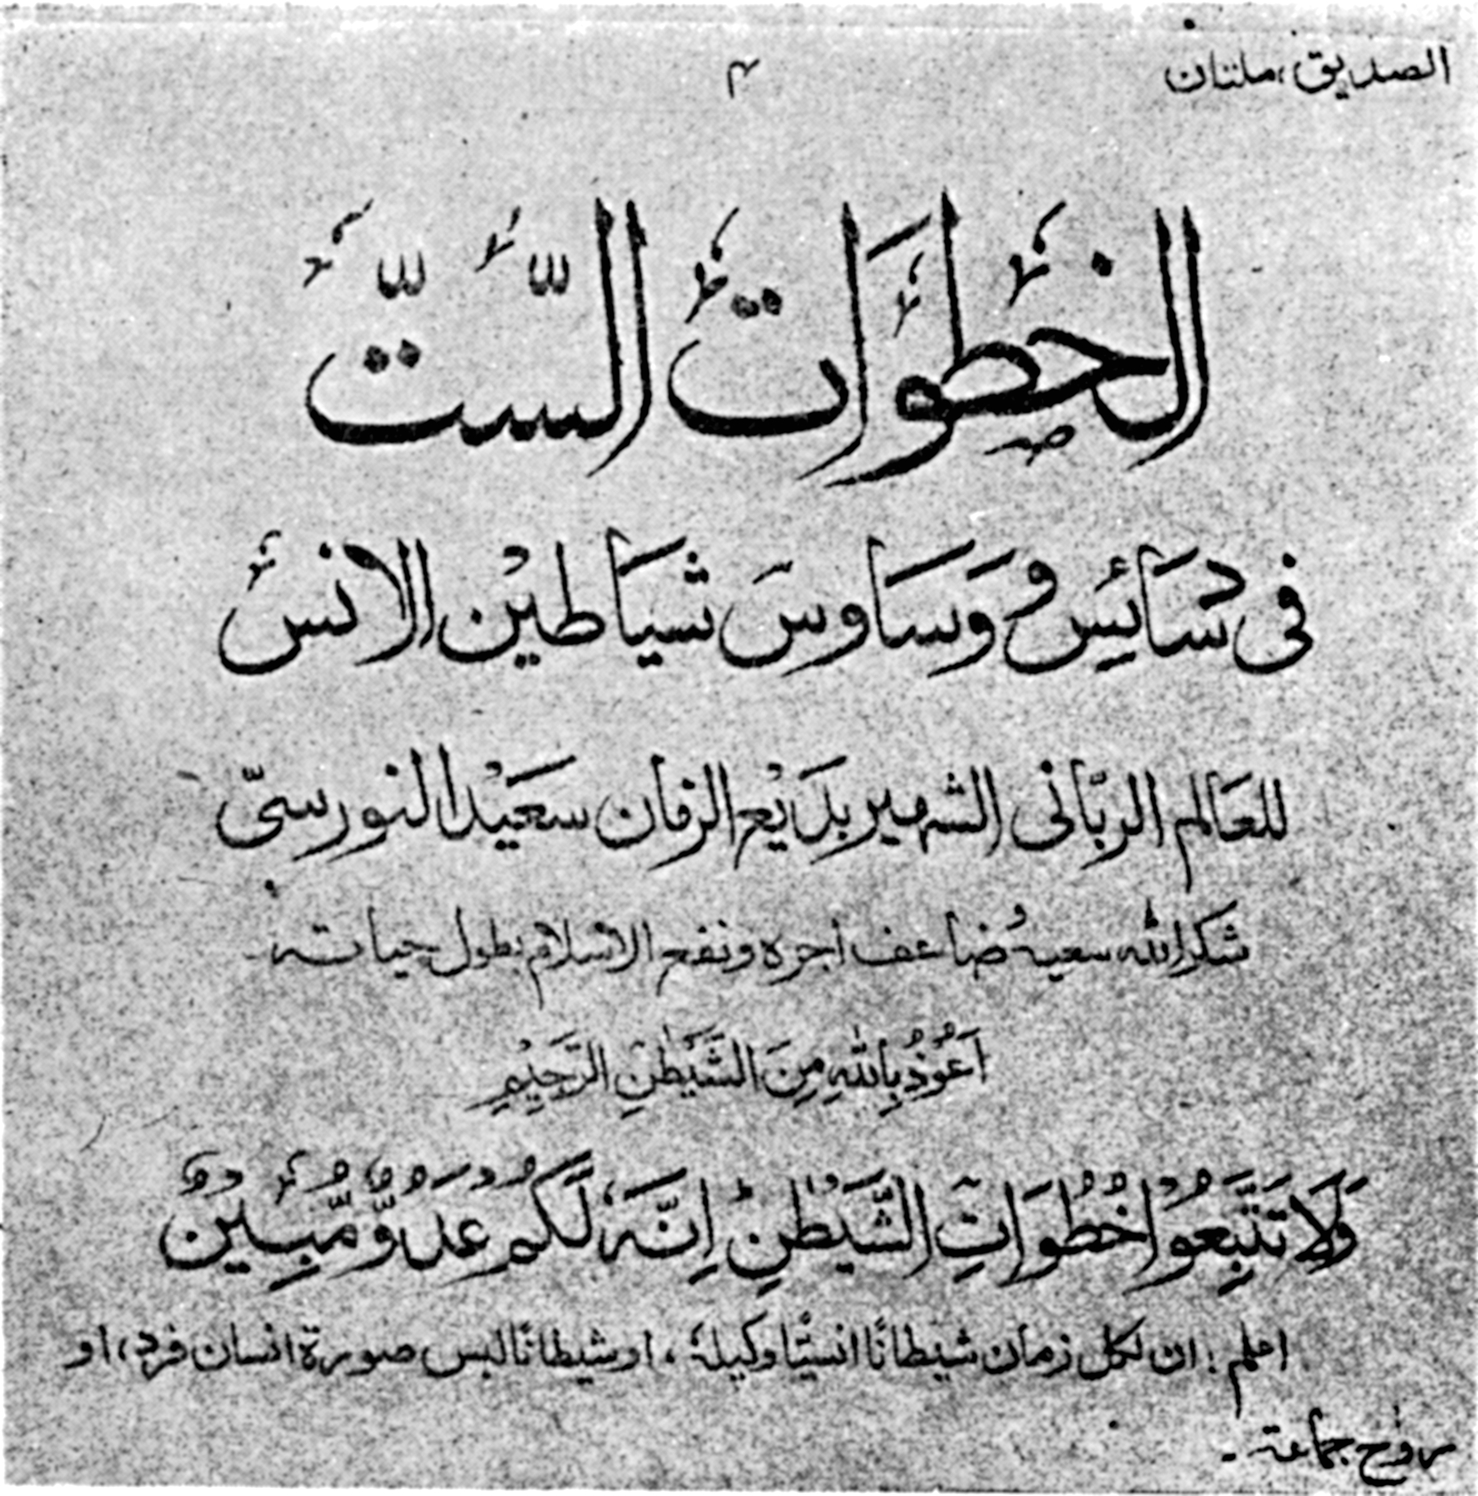 الصديق، ملتان
۴
الخطوات الست
فى دسائس و وساوس شياطين الانس
للعالم الربّانى الشهير بديع الزمان سعيد النورسىّ
شكر الله سعيه ضاعف اجره ونفع الاسلام بطول حياته۔
اَعُوْذُ بِاللهِ مِنَ الشَّيْطٰنِ الرَّجِيْمِ
وَلَا تَتَّبِعُوْا خُطُوَاتِ الشَّيْطٰنِ اِنَّهٗ لَكُمْ عَدُوٌّ مُّبِيْنٌ
اعلم : ان لكل زمان شيطانًا انسيًّا وكيلهٗ ، او شيطانًا لبس صورة انسان فرد، او
روح جماعة ۔